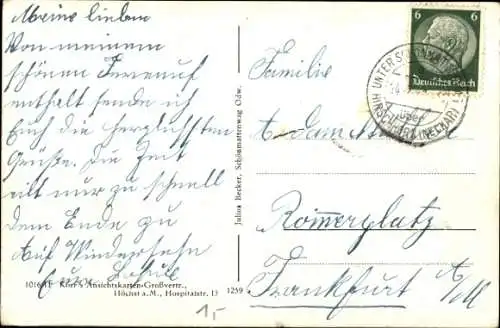 Meine lieben
Von meinem
schönen Ferienauf
enthalt sende ich
Euch die herzlichsten
Grüße. Die Zeit
eilt nur zu schnell
dem Ende zu
Auf Wiedersehn
Eure
1016
Ansichtskarten-Großvertr.,
Höchst a.M., Hospitalstr. 13
1259
1,-
Julius Becker, Schönmattenwag Odw.
6 6
Deutsches Reich
UNTER
über
HIRSCHHORN (NECKAR)
Familie
Adam
Römerplatz
Frankfurt a/M